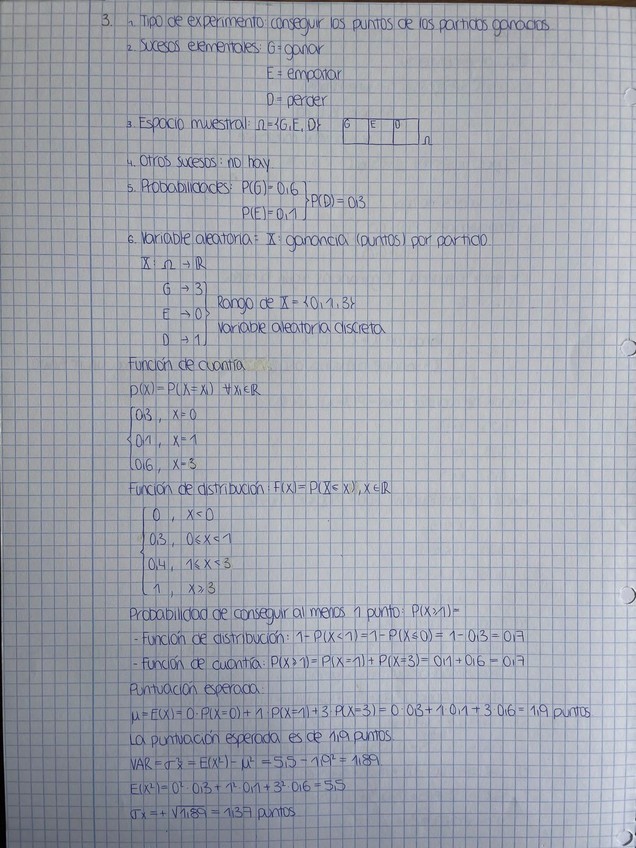 3. 1. Tipo de experimento: conseguir los puntos de los partidos ganados
2. Sucesos elementales: G=ganar
E=empatar
D=perder
3. Espacio muestral: Ω={G,E,D} G E D Ω
4. Otros sucesos: no hay
5. Probabilidades: P(G)=0,6
P(E)=0,1 } P(D)=0,3
6. Variable aleatoria: X: ganancia (puntos) por partido
X: Ω → ℝ
G → 3
E → 0 } Rango de X={0,1,3}
D → 1 Variable aleatoria discreta
Función de cuantía
p(x)=P(X=xᵢ) ∀xᵢ∈ℝ
0,3, x=0
0,1, x=1
0,6, x=3
Función de distribución: F(x)=P(X≤x), x∈ℝ
0, x<0
0,3, 0≤x<1
0,4, 1≤x<3
1, x≥3
Probabilidad de conseguir al menos 1 punto: P(X≥1)=
- Función de distribución: 1-P(X<1)=1-P(X≤0)=1-0,3=0,7
- Función de cuantía: P(X≥1)=P(X=1)+P(X=3)=0,1+0,6=0,7
Puntuación esperada
μ=E(X)=0·P(X=0)+1·P(X=1)+3·P(X=3)=0·0,3+1·0,1+3·0,6=1,9 puntos
La puntuación esperada es de 1,9 puntos
VAR=σ²x=E(X²)-μ²=5,5-1,9²=1,89
E(X²)=0²·0,3+1²·0,1+3²·0,6=5,5
σx=+√1,89=1,37 puntos